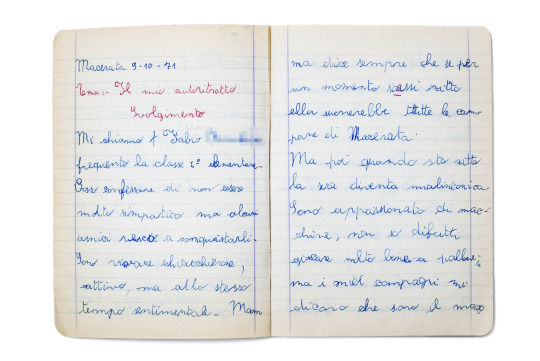 Macerata 9-10-71
Tema:- Il mio autoritratto
Svolgimento
Mi chiamo f Fabio
frequento la classe 5° elementare.
Posso confessare di non essere
molto simpatico ma alcuni
amici riesco a conquistarli.
Son vivace chiaccherone,
cattivo, ma allo stesso
tempo sentimentale. Mam
ma dice sempre che se per
un momento stassi zitto
ella suonerebbe tutte le cam
pane di Macerata.
Ma poi quando sto zitto
la sera diventa malinconica.
Sono appassionato di mac-
chine, non so
giocare molto bene a
ma i miei compagni mi
dicono che sono il mago